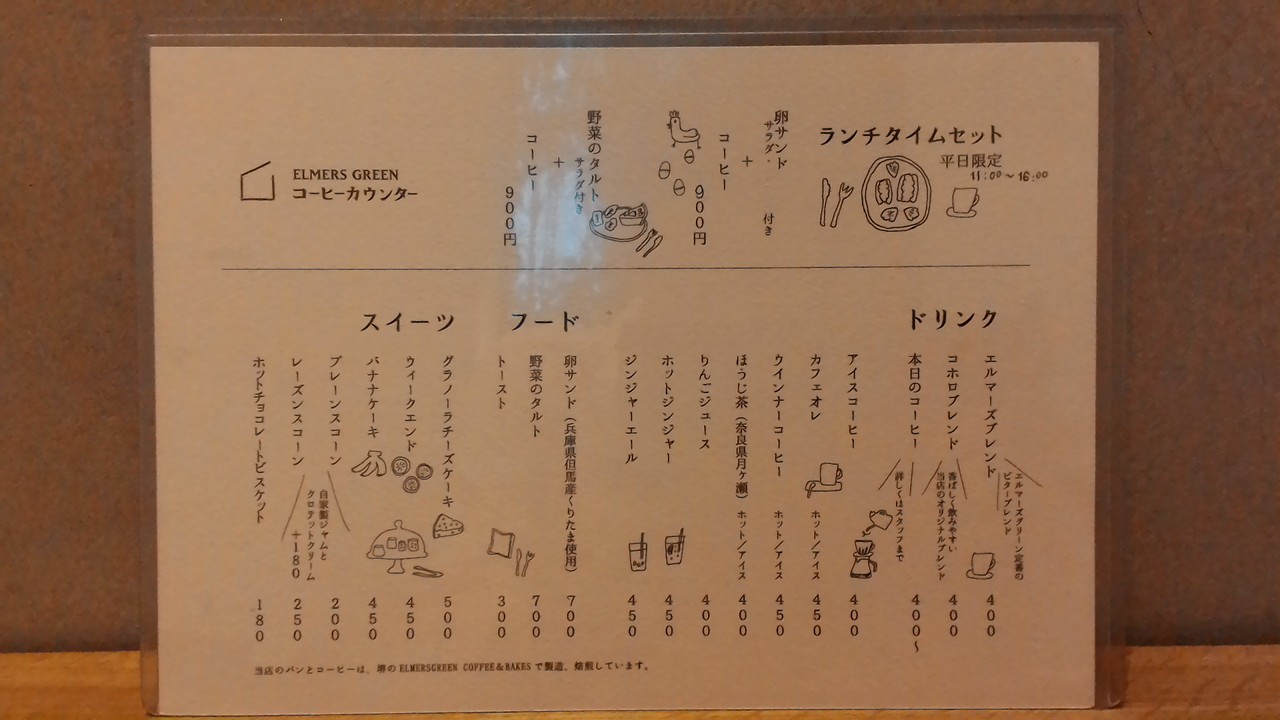 ランチタイムセット
平日限定
11:00～16:00
卵サンド
サラダ・
付き
+
コーヒー
900円
野菜のタルト
サラダ付き
+
コーヒー
900円
ELMERS GREEN
コーヒーカウンター
ドリンク
エルマーズブレンド 400
エルマーズグリーン定番の
ビターブレンド
コホロブレンド 400
香ばしく飲みやすい
当店のオリジナルブレンド
本日のコーヒー 400～
詳しくはスタッフまで
アイスコーヒー 400
カフェオレ ホット/アイス 450
ウインナーコーヒー ホット/アイス 450
ほうじ茶(奈良県月ヶ瀬) ホット/アイス 400
りんごジュース 400
ホットジンジャー 450
ジンジャーエール 450
フード
卵サンド(兵庫県但馬産くりたま使用) 700
野菜のタルト 700
トースト 300
スイーツ
グラノーラチーズケーキ 500
ウィークエンド 450
バナナケーキ 450
プレーンスコーン 200
レーズンスコーン 250
自家製ジャムと
クロテッドクリーム
+180
ホットチョコレートビスケット 180
当店のパンとコーヒーは、堺の ELMERSGREEN COFFEE&BAKES で製造、焙煎しています。